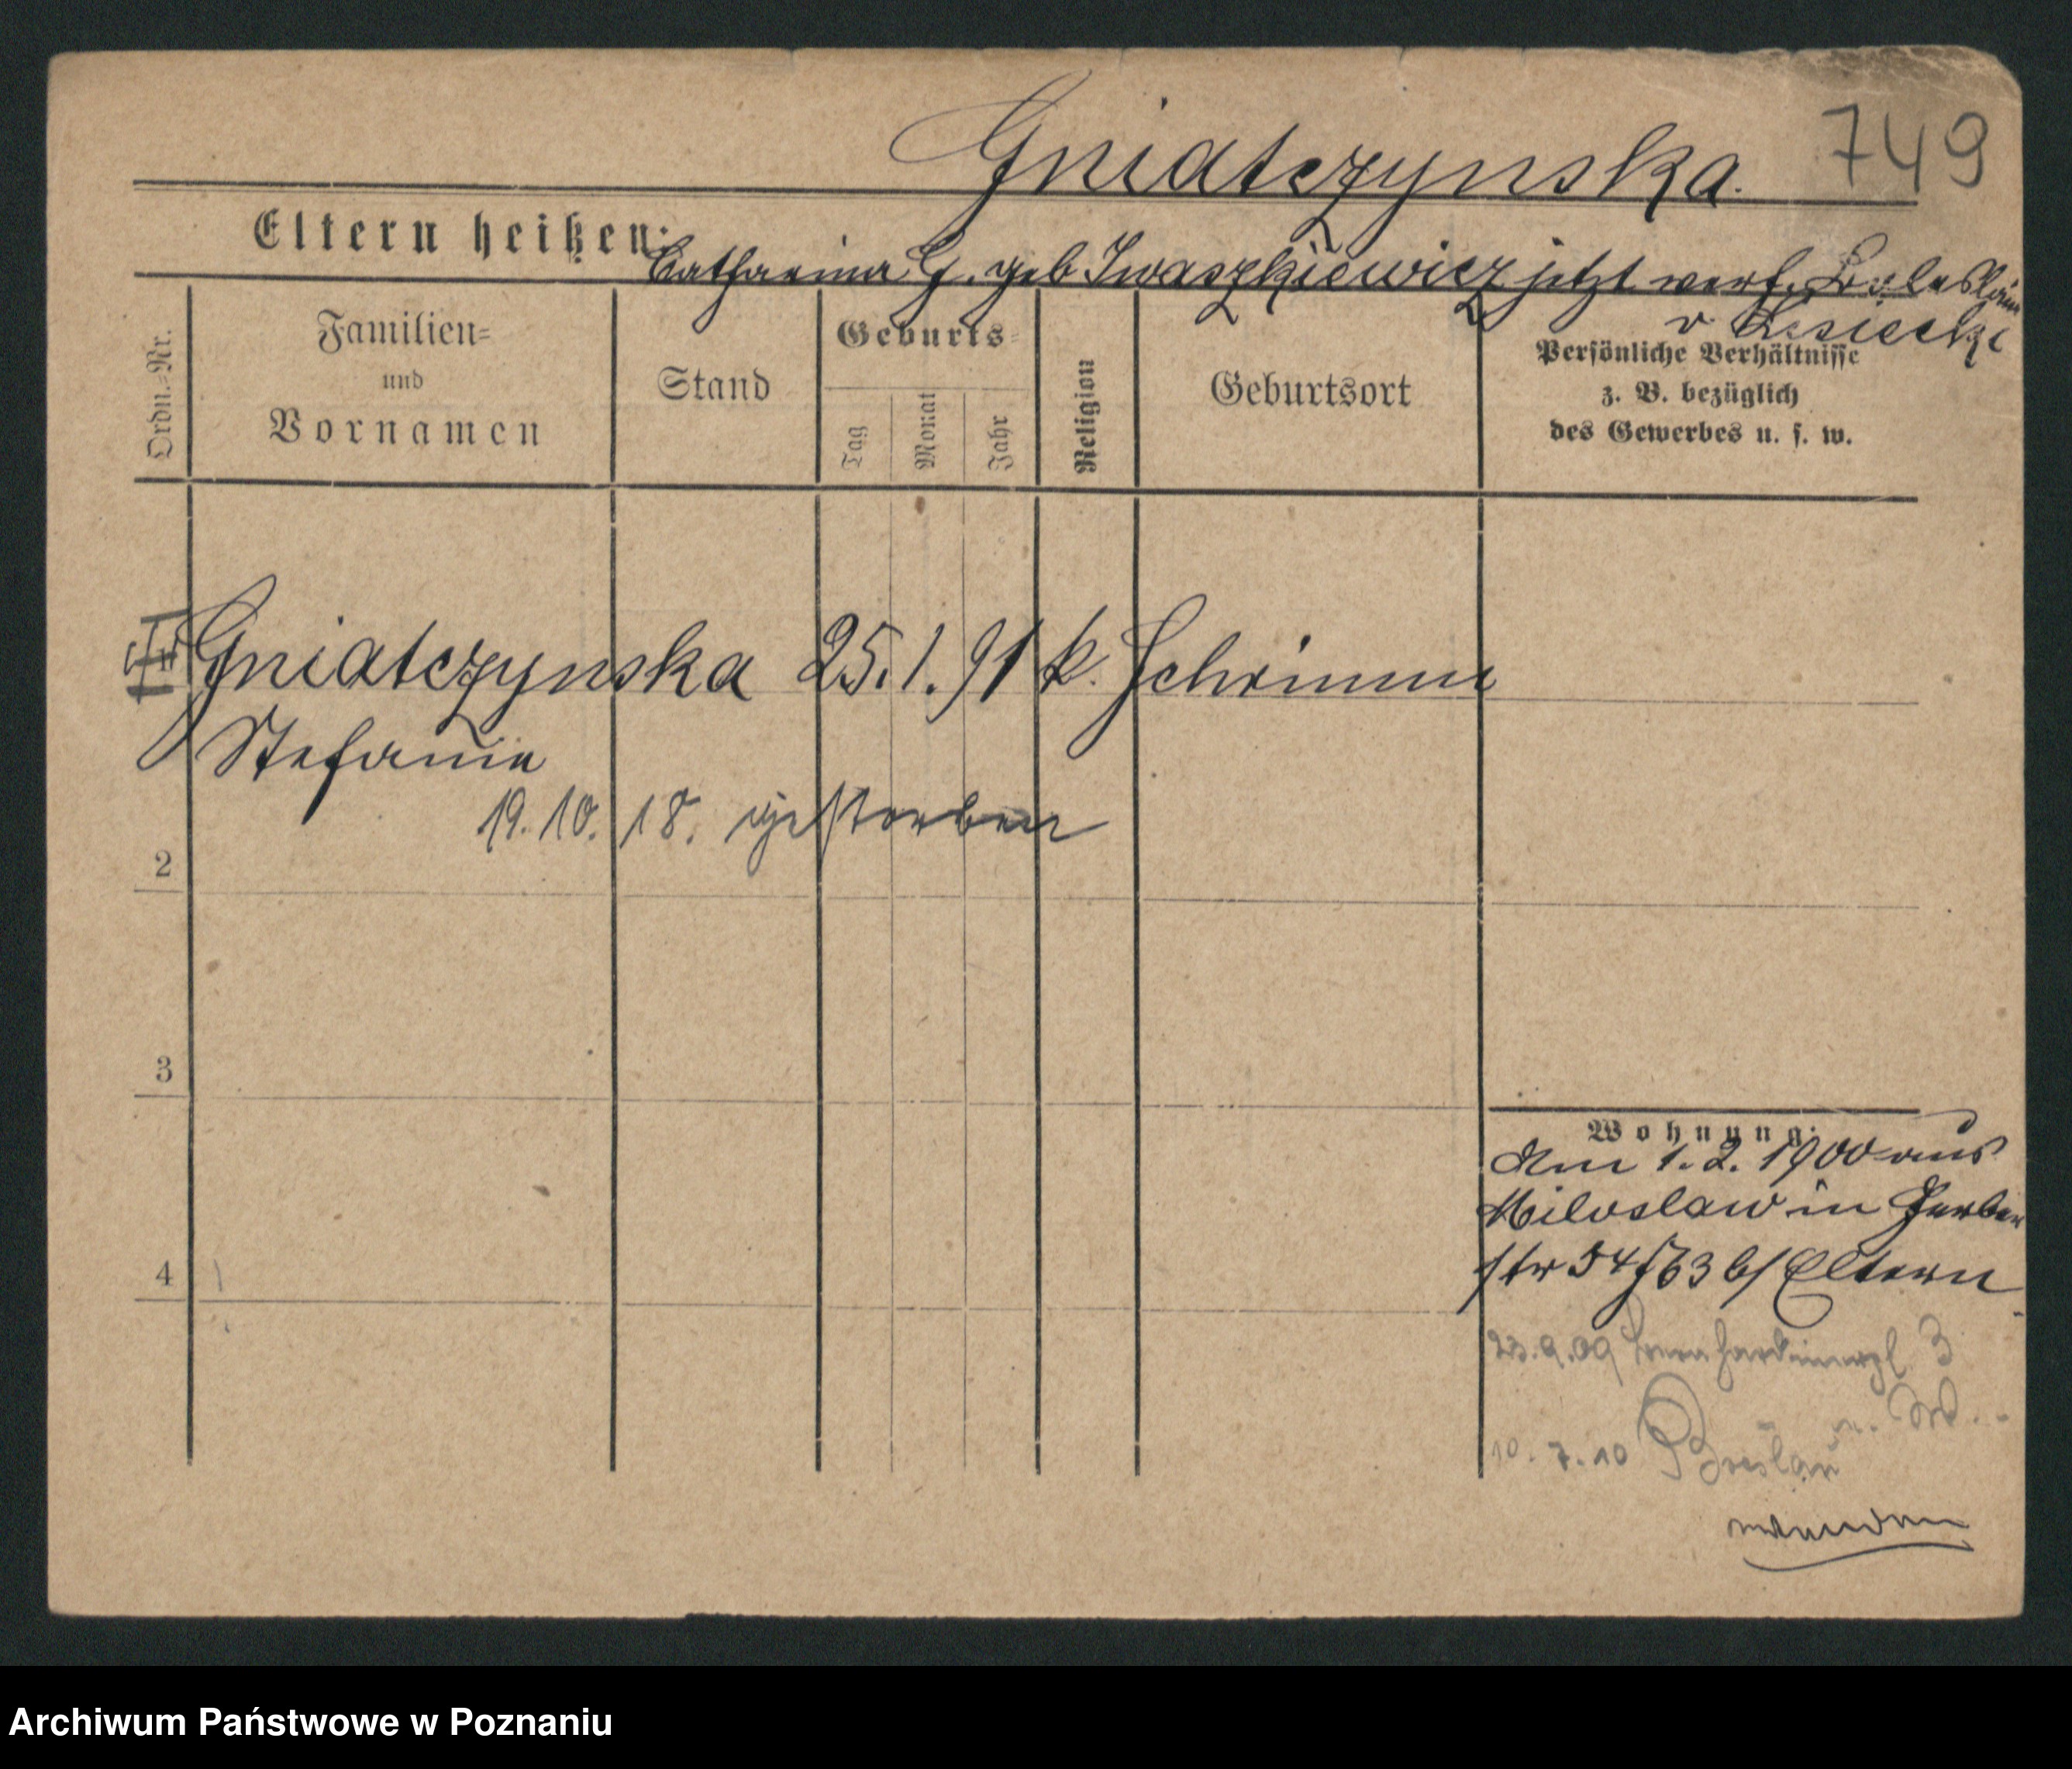 749
Gniatczynska.
Eltern heißen:
Catharina G. geb Iwaszkiewicz jetzt verh. Boleslaus
v Lesiecki
Ordn.-Nr.
Familien-
und
Vornamen
Stand
Geburts-
Tag
Monat
Jahr
Religion
Geburtsort
Persönliche Verhältnisse
z. B. bezüglich
des Gewerbes u. s. w.
Gniatczynska 25.1.91 k. Schrimm
Stefanie
19.10.18. gestorben
2
3
4
Wohnung:
Am 1.2.1900 aus
Miloslaw in Gerber
str 54/63 b/ Eltern
23.9.09 Bernhardinerpl 3
10.7.10 Breslau